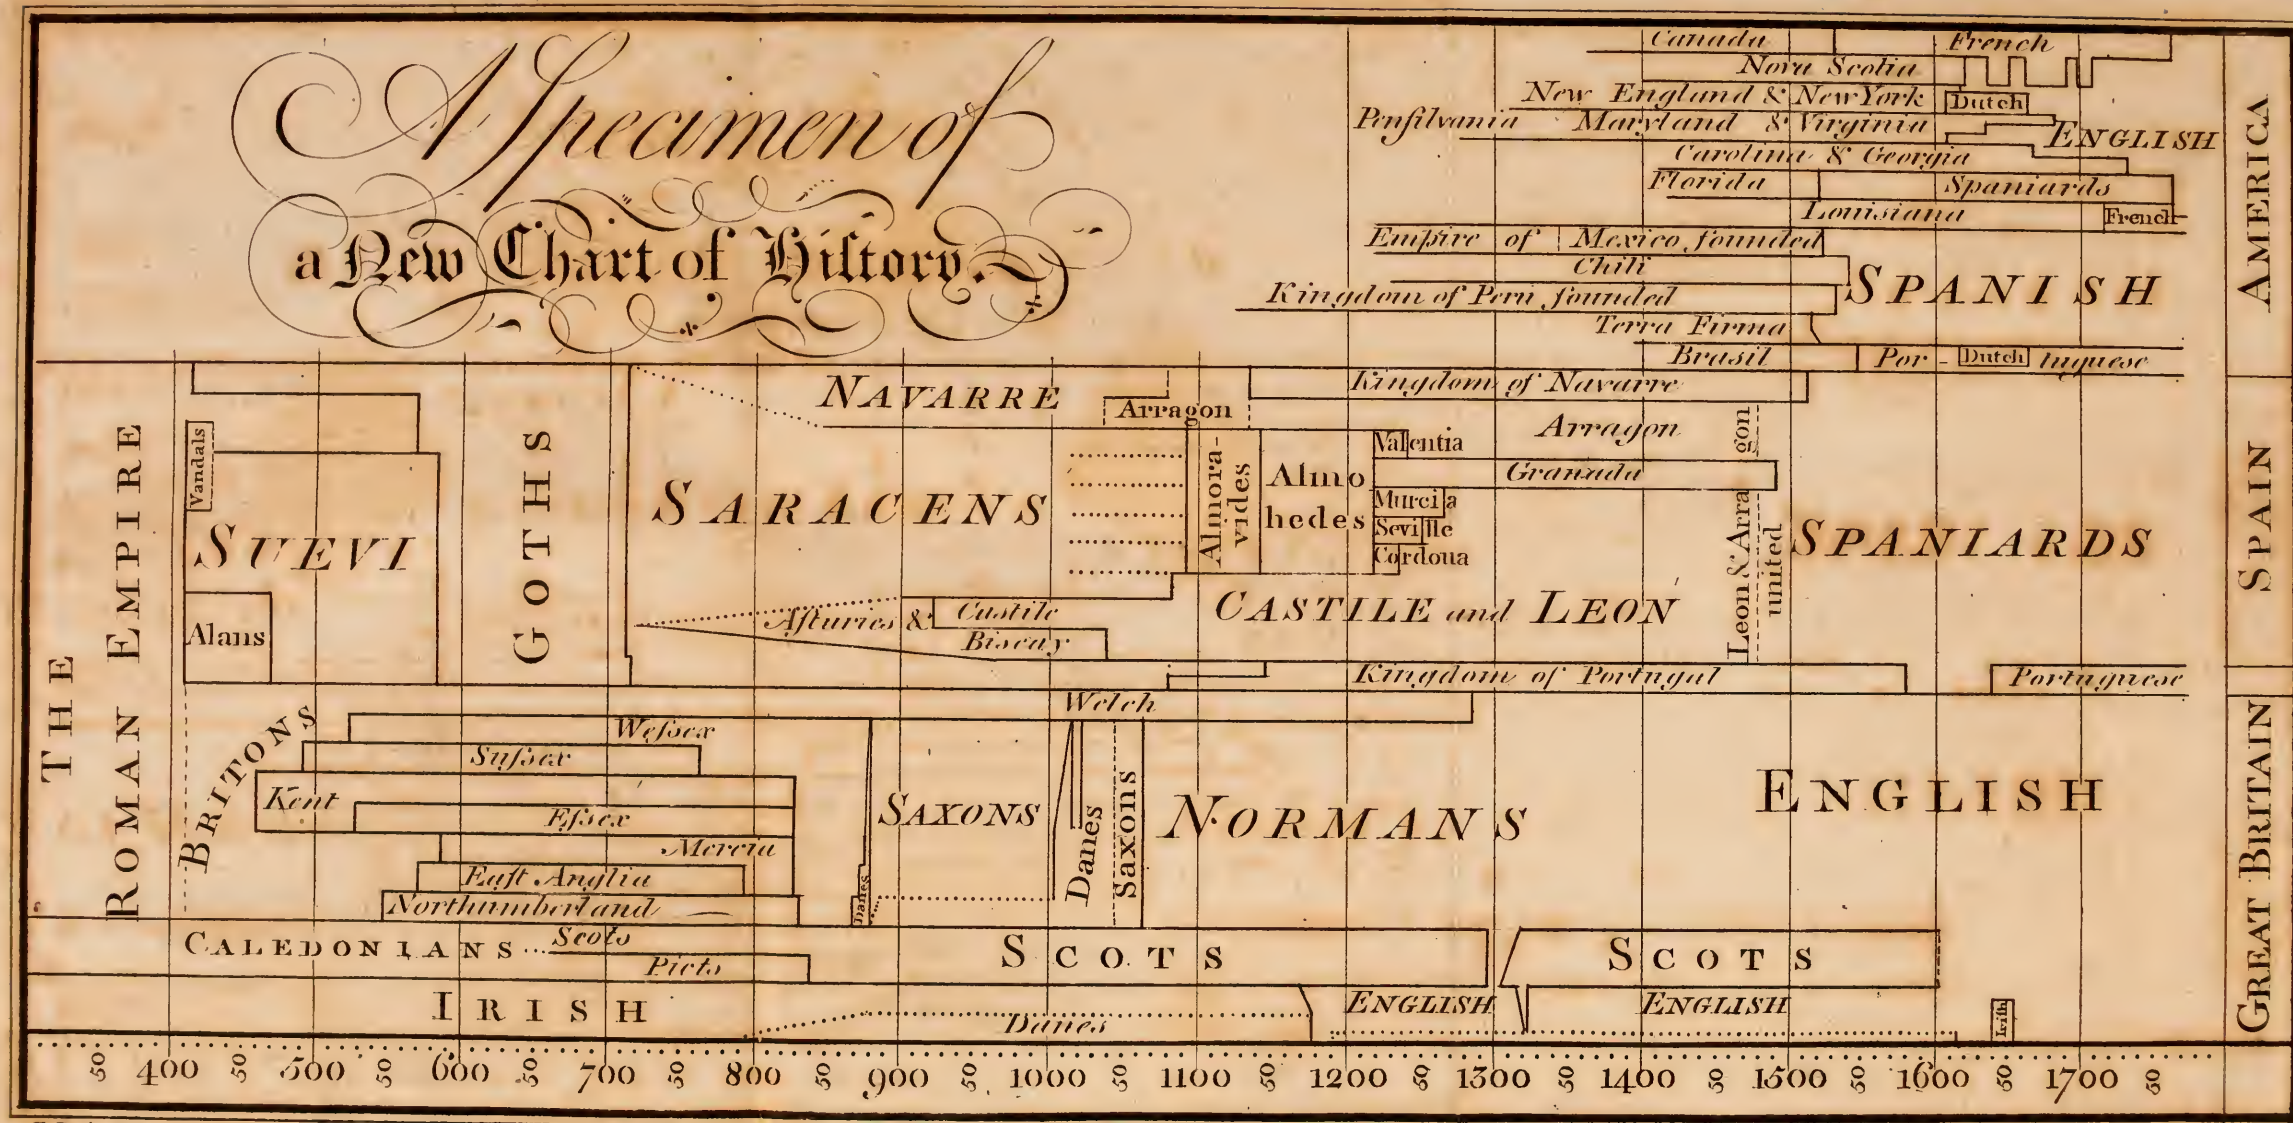 A Specimen of
a New Chart of History.
Canada French
Nova Scotia
New England & New York Dutch
Pensilvania Maryland & Virginia ENGLISH
Carolina & Georgia
Florida Spaniards
Louisiana French
Empire of Mexico founded
Chili
SPANISH
Kingdom of Peru founded
Terra Firma
Brasil Por - Dutch tuguese
AMERICA
THE
ROMAN EMPIRE
Vandals
SUEVI
Alans
GOTHS
NAVARRE
Arragon
Kingdom of Navarre
SARACENS
Almora-
vides
Almo
hedes
Valentia
Arragon
Granada
Murcia
Seville
Cordoua
Leon & Arra gon
united
SPANIARDS
Asturies & Castile
Biscay
CASTILE and LEON
Kingdom of Portugal
Portuguese
SPAIN
BRITONS
Welch
Wessex
Sussex
Kent
Essex
Mercia
East Anglia
Northumberland
Danes
SAXONS
Danes
Saxons
NORMANS
ENGLISH
CALEDONIANS
Scots
Picts
SCOTS
SCOTS
IRISH
Danes
ENGLISH
ENGLISH
Irish
GREAT BRITAIN
50 400 50 500 50 600 50 700 50 800 50 900 50 1000 50 1100 50 1200 50 1300 50 1400 50 1500 50 1600 50 1700 50